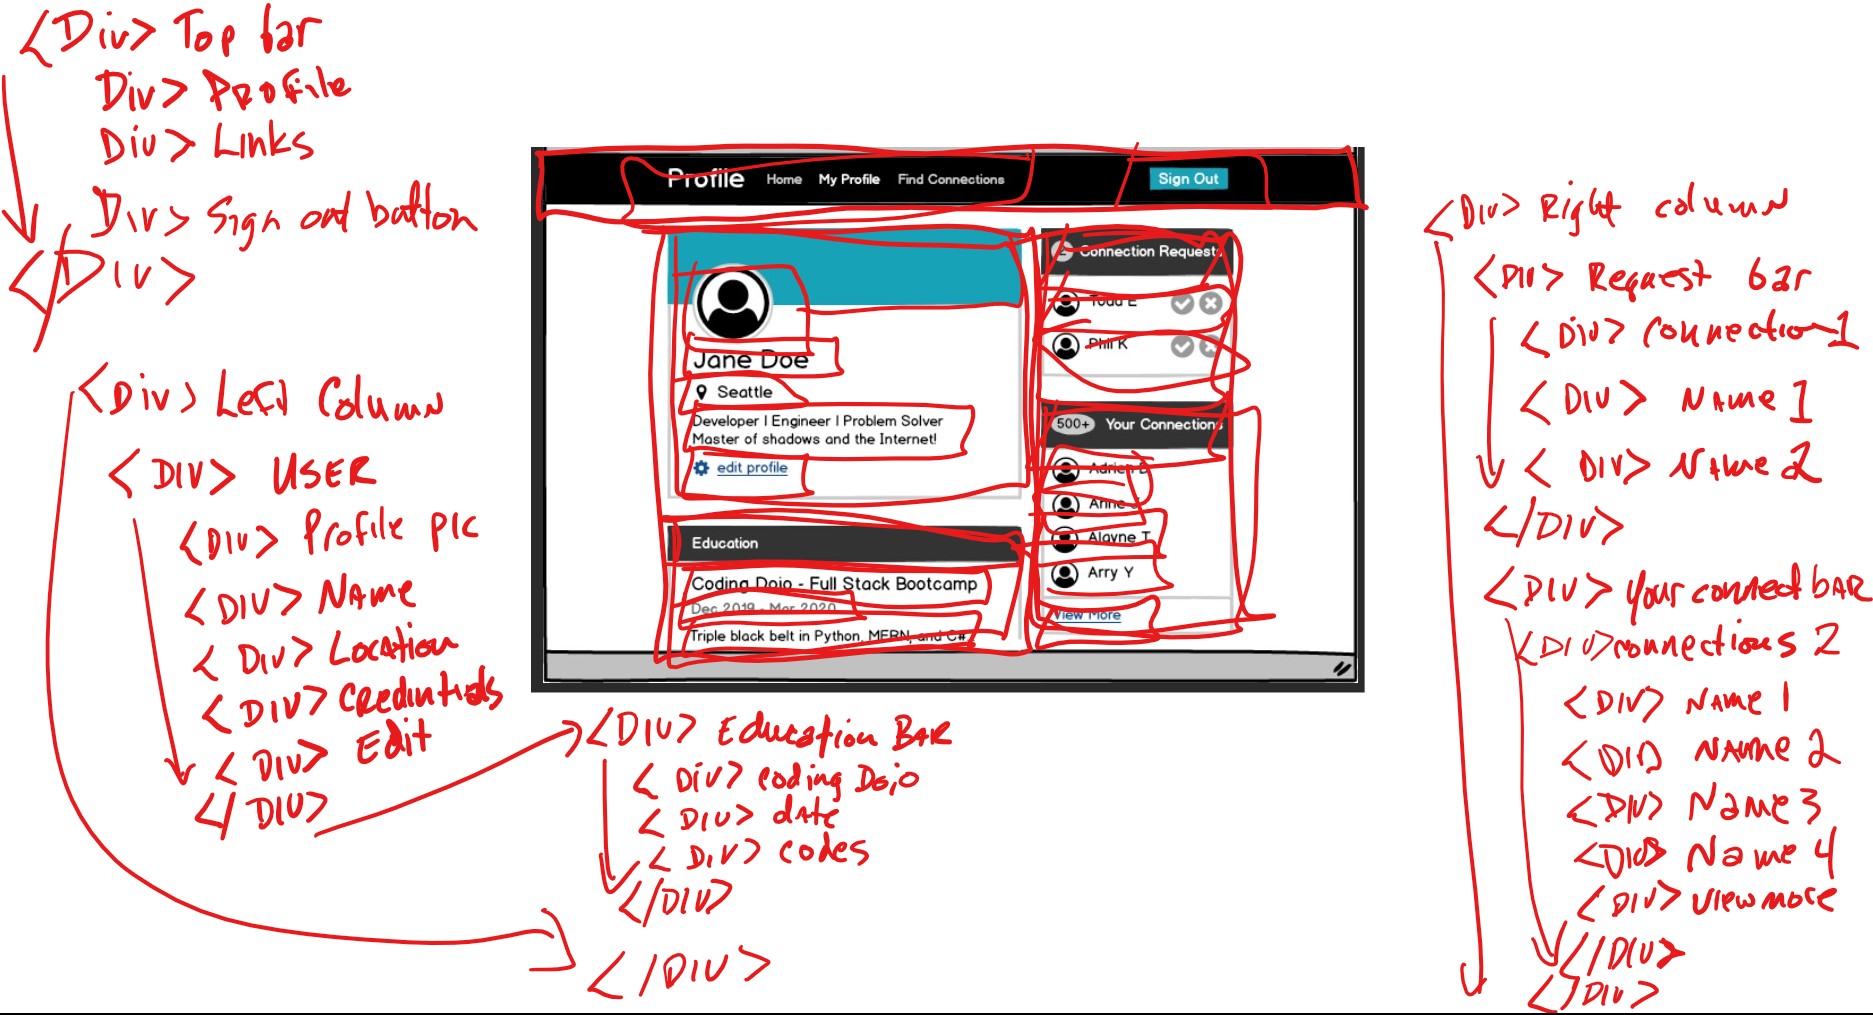 <Div> Top bar
Div> Profile
Div> Links
Div> Sign out button
</Div>
<Div> Left Column
<DIV> USER
<DIV> Profile pic
<DIV> Name
<Div> Location
<DIV> Credentials
<DIV> Edit
</DIV>
<DIV> Education BAR
<Div> coding Dojo
<DIV> date
<DIV> codes
</DIV>
</DIV>
Profile Home My Profile Find Connections Sign Out
Jane Doe
Seattle
Developer | Engineer | Problem Solver
Master of shadows and the Internet!
edit profile
Education
Coding Dojo - Full Stack Bootcamp
Dec 2019 - Mar 2020
Triple black belt in Python, MERN, and C#
2 Connection Requests
Todd E
Phil K
500+ Your Connections
Adrien D
Anne J
Alayne T
Arry Y
View More
<Div> Right column
<DIV> Request bar
<Div> Connection 1
<DIV> Name 1
<DIV> Name 2
</DIV>
<DIV> Your connect BAR
<DIV> connections 2
<DIV> Name 1
<DIV> NAME 2
<DIV> Name 3
<DIV> Name 4
<DIV> view more
</DIV>
</DIV>